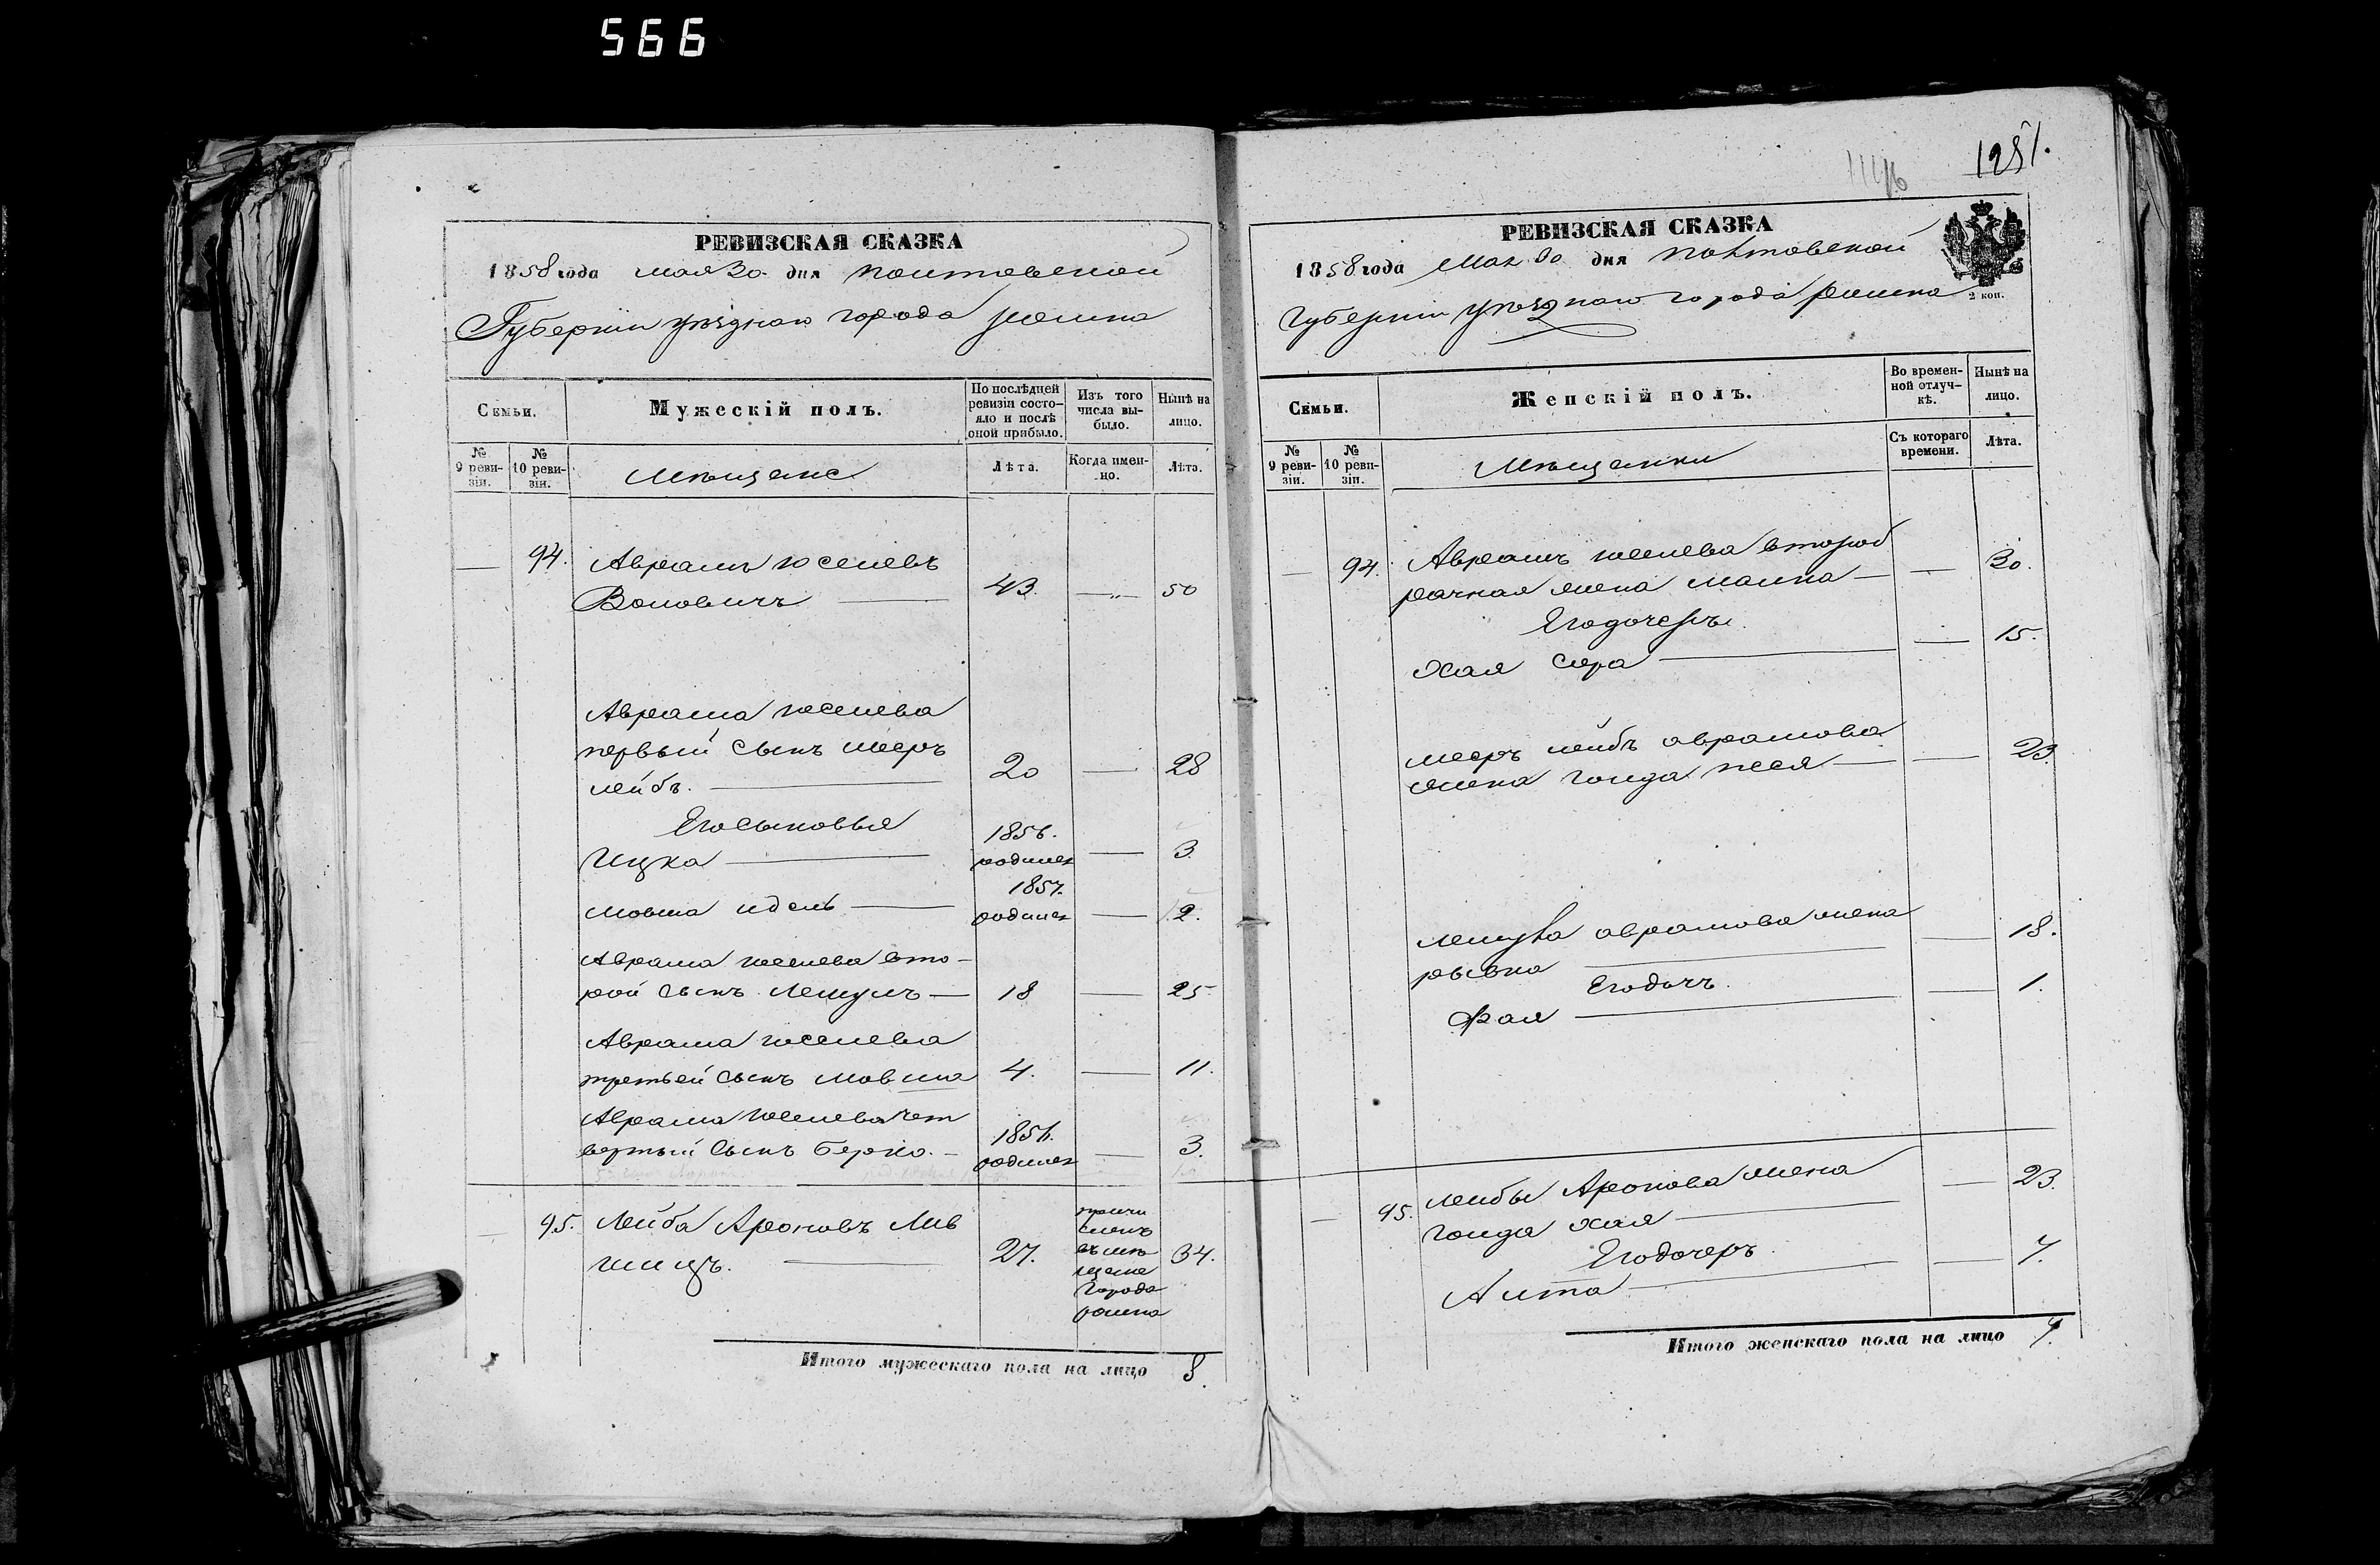 566
1251.
РЕВИЗСКАЯ СКАЗКА
1858 года мая 30 дня Полтавской
Губернии уѣзднаго города Ромна
Семьи.
Мужескій полъ.
По послѣдней ревизіи состояло и послѣ оной прибыло.
Изъ того числа выбыло.
Нынѣ на лицо.
№ 9 ревизіи.
№ 10 ревизіи.
Мѣщане
Лѣта.
Когда именно.
Лѣта.
94. Аврамъ Юселевъ
43. 50
Аврама Юселева
первый сынъ Мееръ
Лейбъ. 20 28
Его сыновья
1856.
Ицка родился 3.
1857.
Мовша Идель родился 2.
Аврама Юселева вто-
рой сынъ 18 25.
Аврама Юселева
третьей сынъ Мовша 4. 11.
Аврама Юселева чет
1856.
вертый сынъ Берко. родился 3.
95. Лейба Ароновъ Лив
шицъ. 27. 34.
города
Ромна
Итого мужескаго пола на лицо 8.
РЕВИЗСКАЯ СКАЗКА
1858 года Мая 30 дня Полтавской
2 коп.
Губерніи уѣзднаго города Ромна
Семьи.
Женскій полъ.
Во временной отлучкѣ.
Нынѣ на лицо.
№ 9 ревизіи.
№ 10 ревизіи.
Мѣщанки
Съ котораго времени.
Лѣта.
94. Аврамъ Юселева второб
рачная жена Малка 30.
Его дочерь
Хая Сора 15.
Мееръ Лейбъ Аврамова
жена Голда Песя 23.
Аврамова жена
Рывка 18.
Его дочь
Фая 1.
95. Лейбы Аронова жена 23.
Голда Хая
Его дочерь
Алта 7.
Итого женскаго пола на лицо 7.